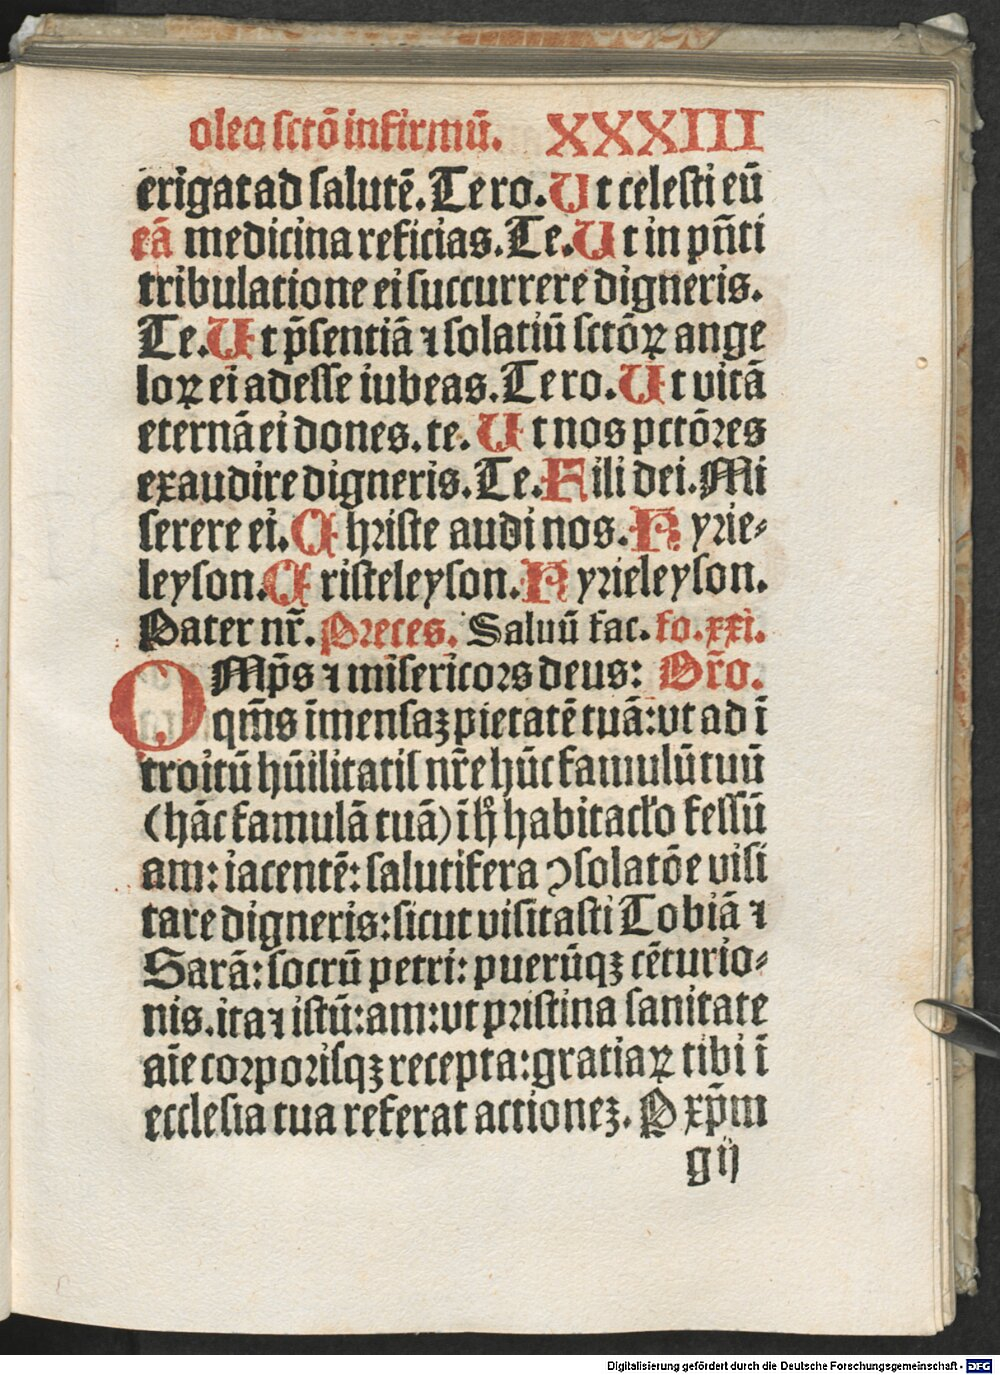 oleo sctō infirmū. XXXIII
erigat ad salutē. Te ro. Ut celesti eū
eā medicina reficias. Te. Ut in pn̄ti
tribulatione ei succurrere digneris.
Te. Ut p̄sentiā ⁊ solatiū sctōꝝ ange
loꝝ ei adesse iubeas. Te ro. Ut vitā
eternā ei dones. te. Ut nos pctōres
exaudire digneris. Te. Fili dei. Mi
serere ei. Christe audi nos. Kyrie⸗
leyson. Cristeleyson. Kyrieleyson.
Pater nr̄. Preces. Saluū fac. fo. xxi.
OMp̄s ⁊ misericors deus: Or̄o.
qm̄s īmensaꝫ pietatē tuā: vt ad ī
troitū hūilitatis nr̄e hūc famulū tuū
(hāc famulā tuā) ī hͦ habitacło fessū
am: iacentē: salutifera ꝯsolatōe visi
tare digneris: sicut visitasti Tobiā ⁊
Sarā: socrū petri: puerūqꝫ cēturio⸗
nis. ita ⁊ istū: am: vt pristina sanitate
aīe corporisqꝫ recepta: gratiaꝝ tibi ī
ecclesia tua referat actioneꝫ. P xp̄m
g ij
Digitalisierung gefördert durch die Deutsche Forschungsgemeinschaft - DFG